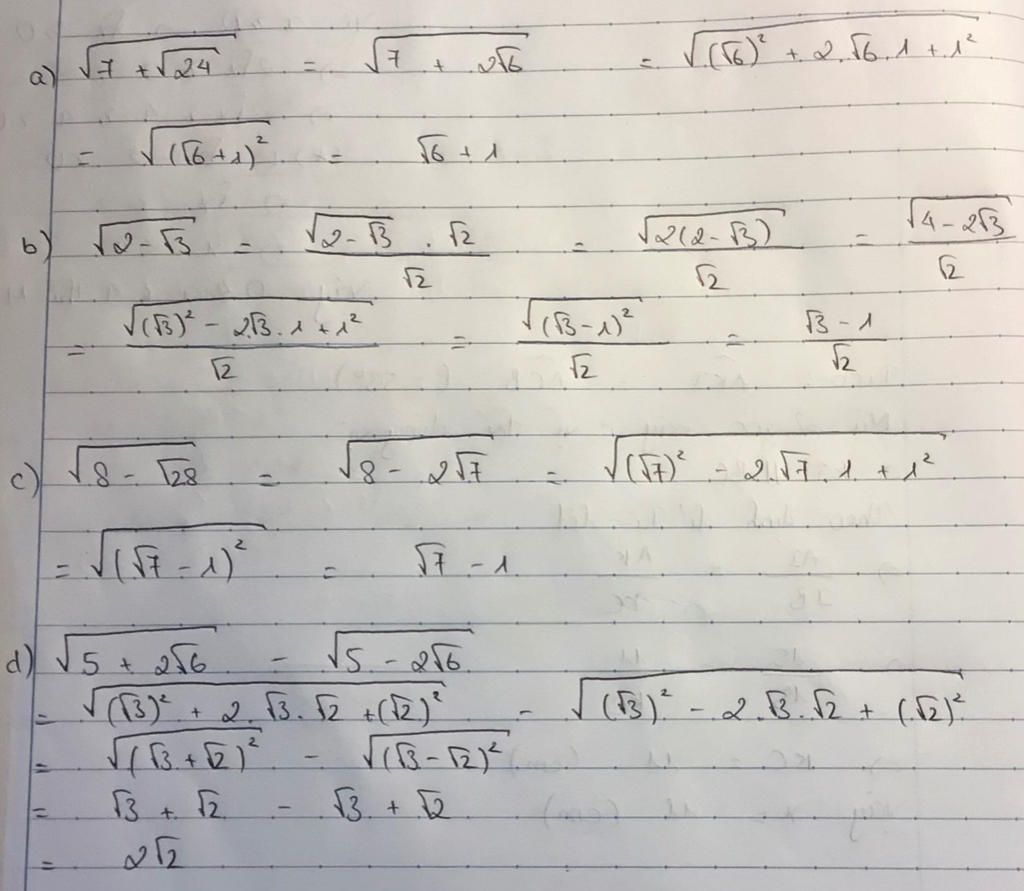 a) √(7 + √24) = √(7 + 2√6) = √((√6)² + 2.√6.1 + 1²)
= √((√6+1)²) = √6 + 1
b) √(2-√3) = (√(2-√3) . √2)/√2 = √(2(2-√3))/√2 = √(4-2√3)/√2
= √((√3)² - 2√3.1 + 1²)/√2 = √((√3-1)²)/√2 = (√3-1)/√2
c) √(8 - √28) = √(8 - 2√7) = √((√7)² - 2.√7.1 + 1²)
= √((√7-1)²) = √7 - 1
d) √(5 + 2√6) - √(5 - 2√6)
= √((√3)² + 2.√3.√2 + (√2)²) - √((√3)² - 2.√3.√2 + (√2)²)
= √((√3+√2)²) - √((√3-√2)²)
= √3 + √2 - √3 + √2
= 2√2